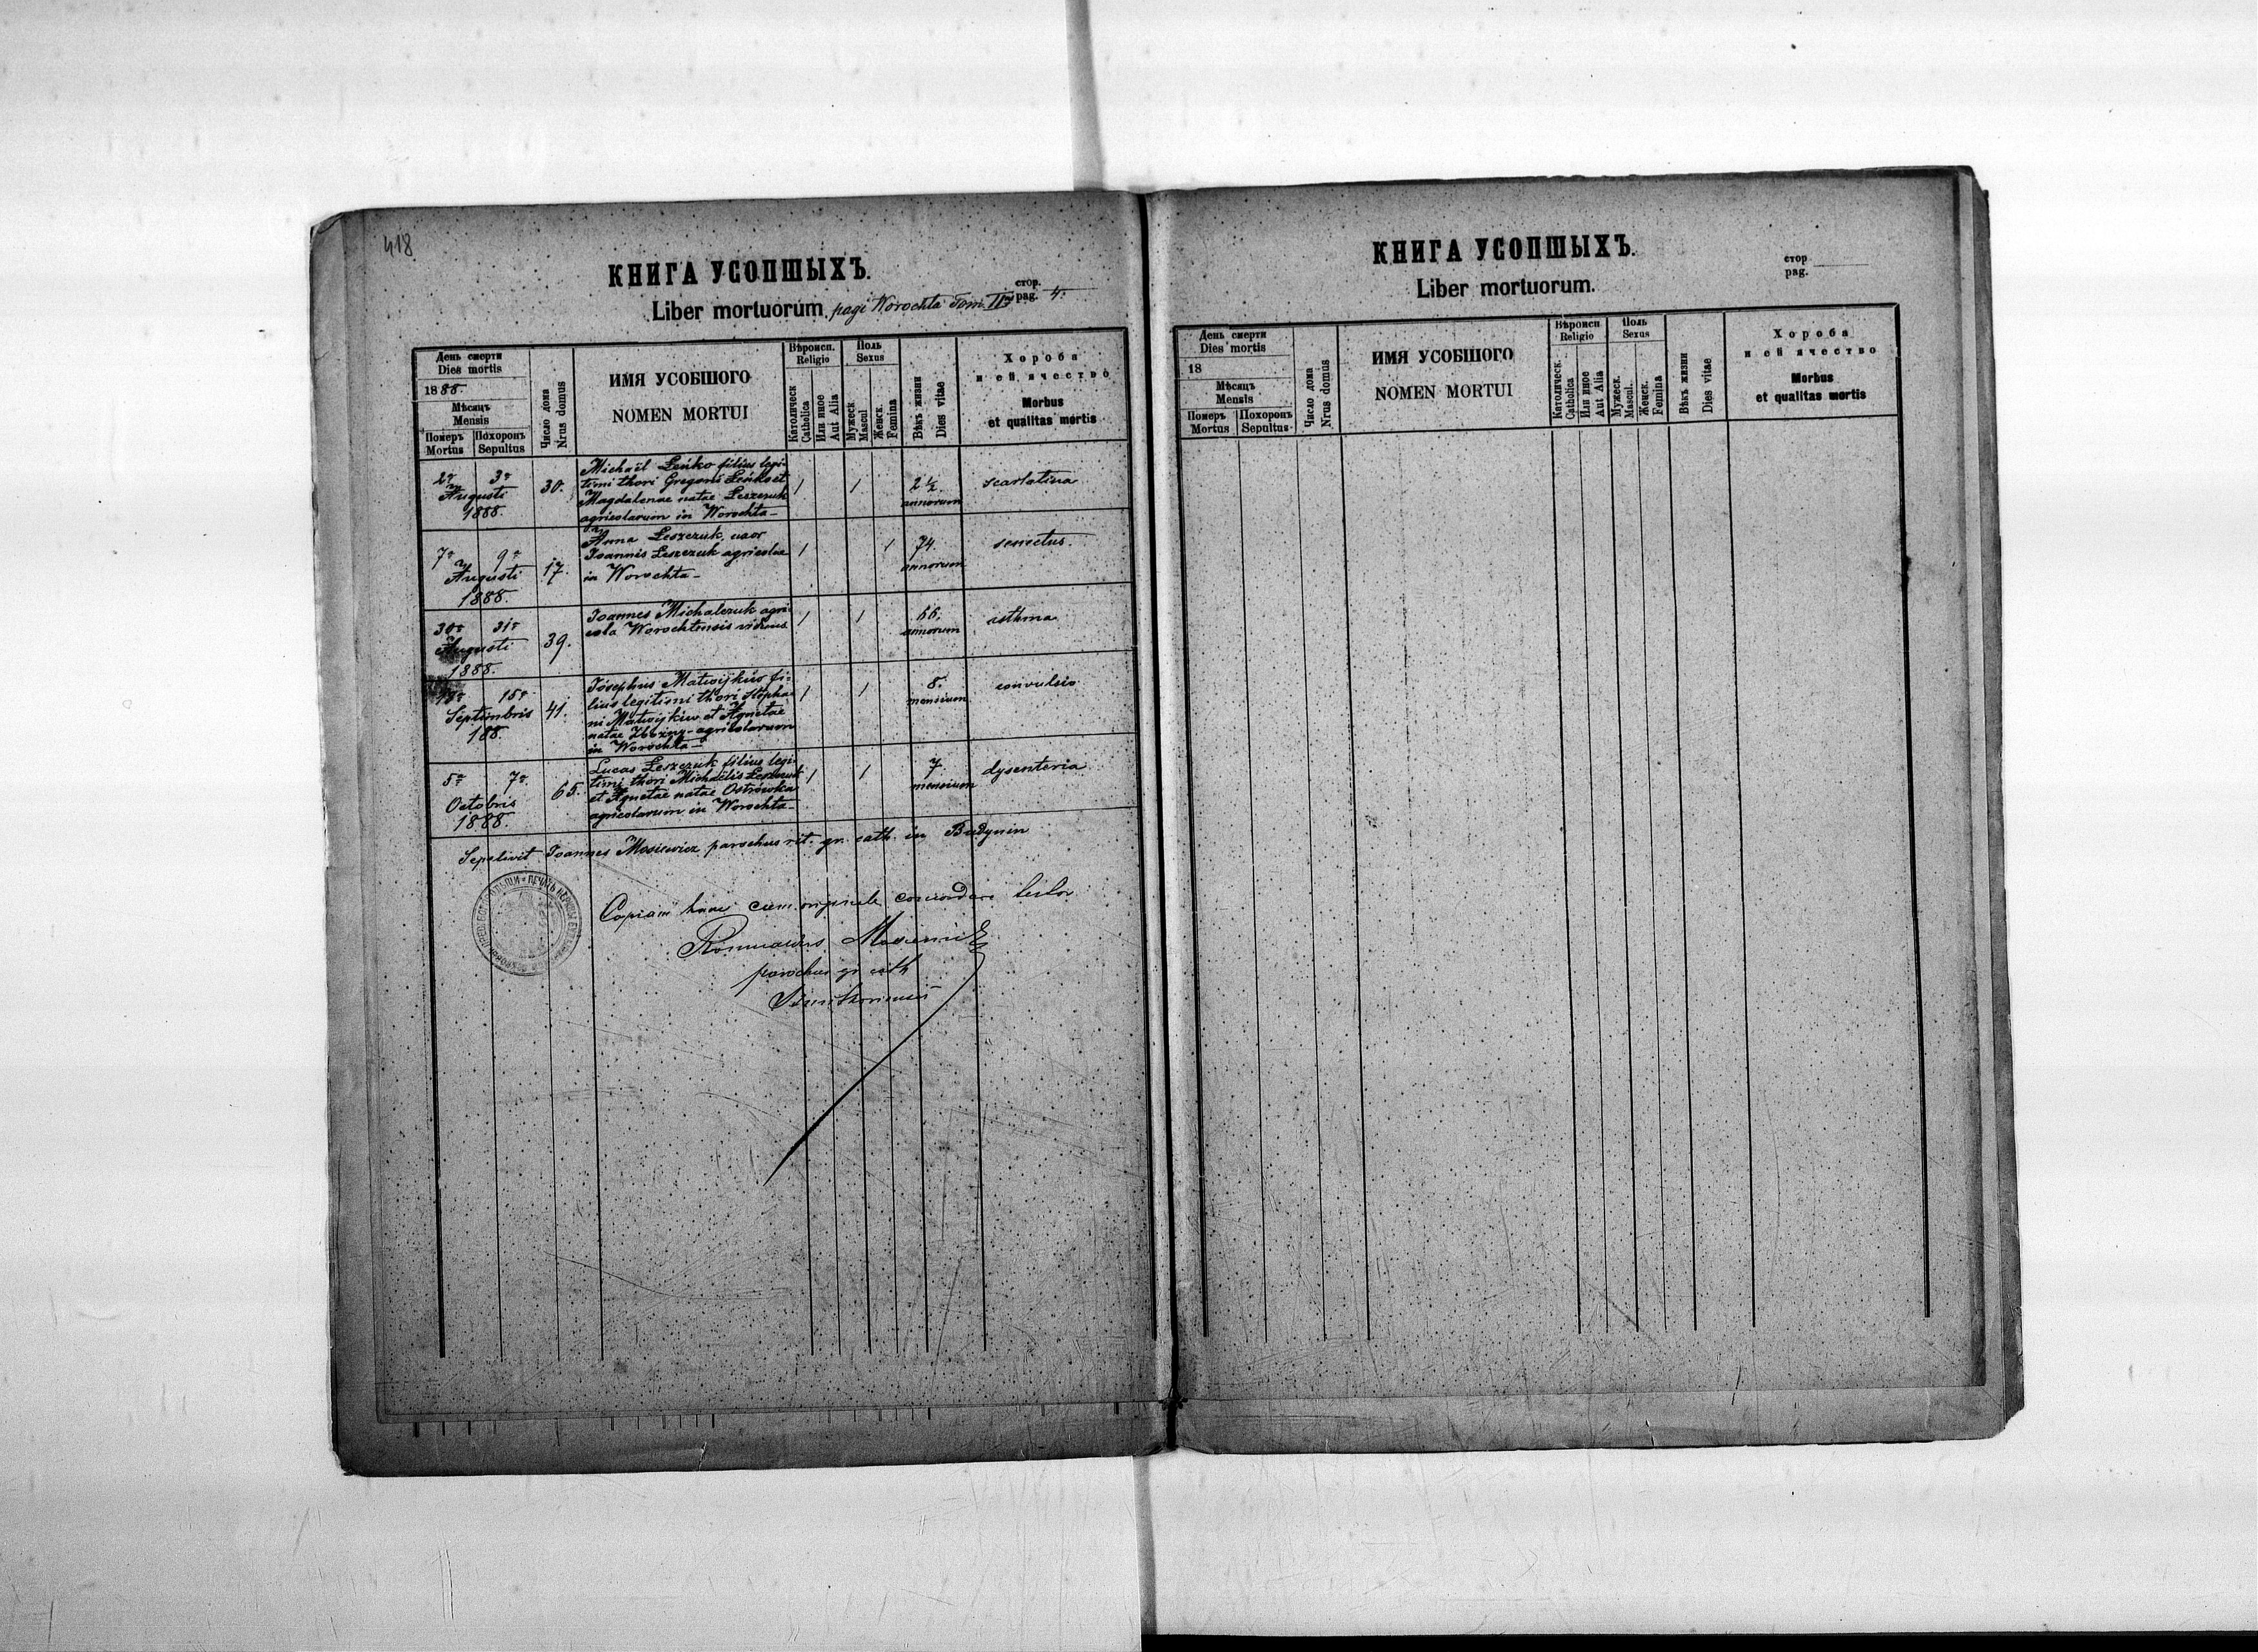 418
КНИГА УСОПШЫХЪ.
Liber mortuorum pagi Worochta Tomi III стор. pag. 4.
День смерти
Dies mortis
1888.
Мѣсяцъ
Mensis
Померъ Похоронъ
Mortus Sepultus
Число дома
Nrus domus
ИМЯ УСОБШОГО
NOMEN MORTUI
Вѣроисп.
Religio
Католическ
Catholica
Или иное
Aut Alia
Поль
Sexus
Мужеск
Mascul
Женск.
Femina
Вѣкъ жизни
Dies vitae
Хороба
и ей ячество
Morbus
et qualitas mortis
2a 3a
Augusti
1888.
30.
Michaël Leńko filius legi-
timi thori Gregorii Leńko et
Magdalenae natae Leszczuk
agricolarum in Worochta
1 1
2 ½
annorum
scarlatina
7a 9a
Augusti
1888.
17.
Anna Leszczuk uxor
Joannis Leszczuk agricolae
in Worochta
1 1
74.
annorum
senectus
30a 31a
Augusti
1888.
39.
Joannes Michalczuk agri-
cola Worochtensis viduus
1 1
66.
annorum
asthma
15a
Septembris
188.
41.
Josephus Matwijkiw fi-
lius legitimi thori Stepha-
ni Matwijkiw et Agnetae
natae agricolarum
in Worochta
1 1
8.
mensium
convulsio
5a 7a
Octobris
1888.
65.
Lucas Leszczuk filius legi-
timi thori Michaëlis Leszczuk
et Agnetae natae Ostrowka
agricolarum in Worochta
1 1
7
mensium
dysenteria
Sepelivit Joannes Mosiewicz parochus rit. gr. cath. in Budynin
Copiam hanc cum originale concordare testor
parochus gr cath
КНИГА УСОПШЫХЪ.
Liber mortuorum.
стор
pag.
День смерти
Dies mortis
18
Мѣсяцъ
Mensis
Померъ Похоронъ
Mortus Sepultus
Число дома
Nrus domus
ИМЯ УСОБШОГО
NOMEN MORTUI
Вѣроисп
Religio
Католическ.
Catholica
Или иное
Aut Alia
Поль
Sexus
Мужеск.
Mascul.
Женск.
Femina
Вѣкъ жизни
Dies vitae
Хороба
и ей ячество
Morbus
et qualitas mortis